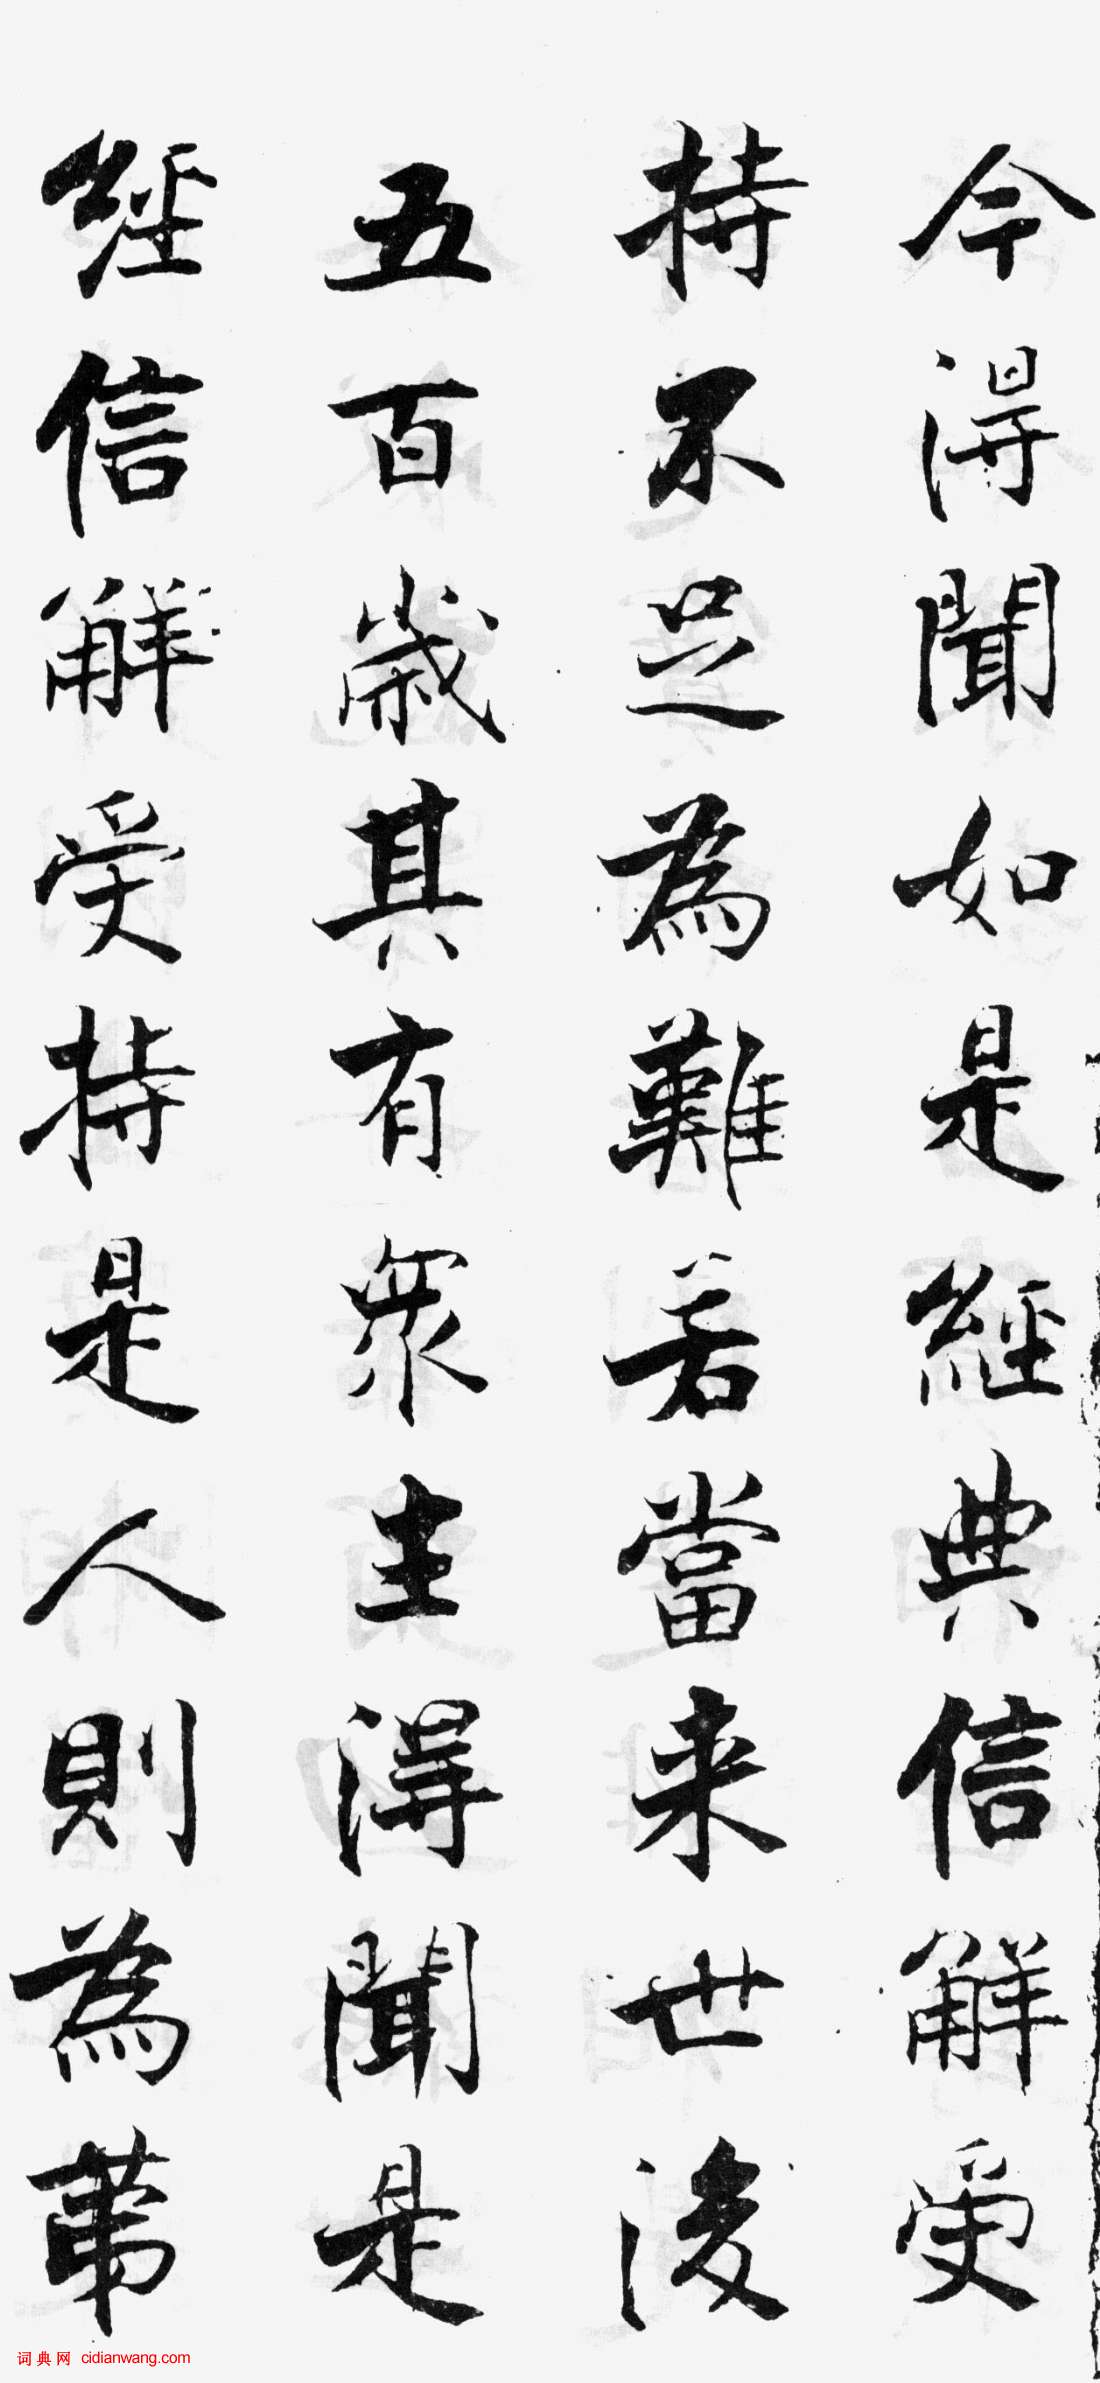 今得聞如是經典信解受
持不足為難若當来世後
五百歲其有眾生得聞是
經信解受持是人則為第
词典网 cidianwang.com